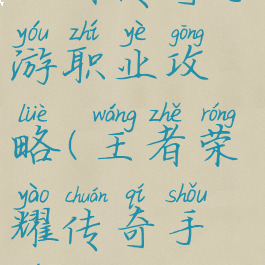 yóu zhí yè gōng
游职业攻
lüè wáng zhě róng
略(王者荣
yào chuán qí shǒu
耀传奇手